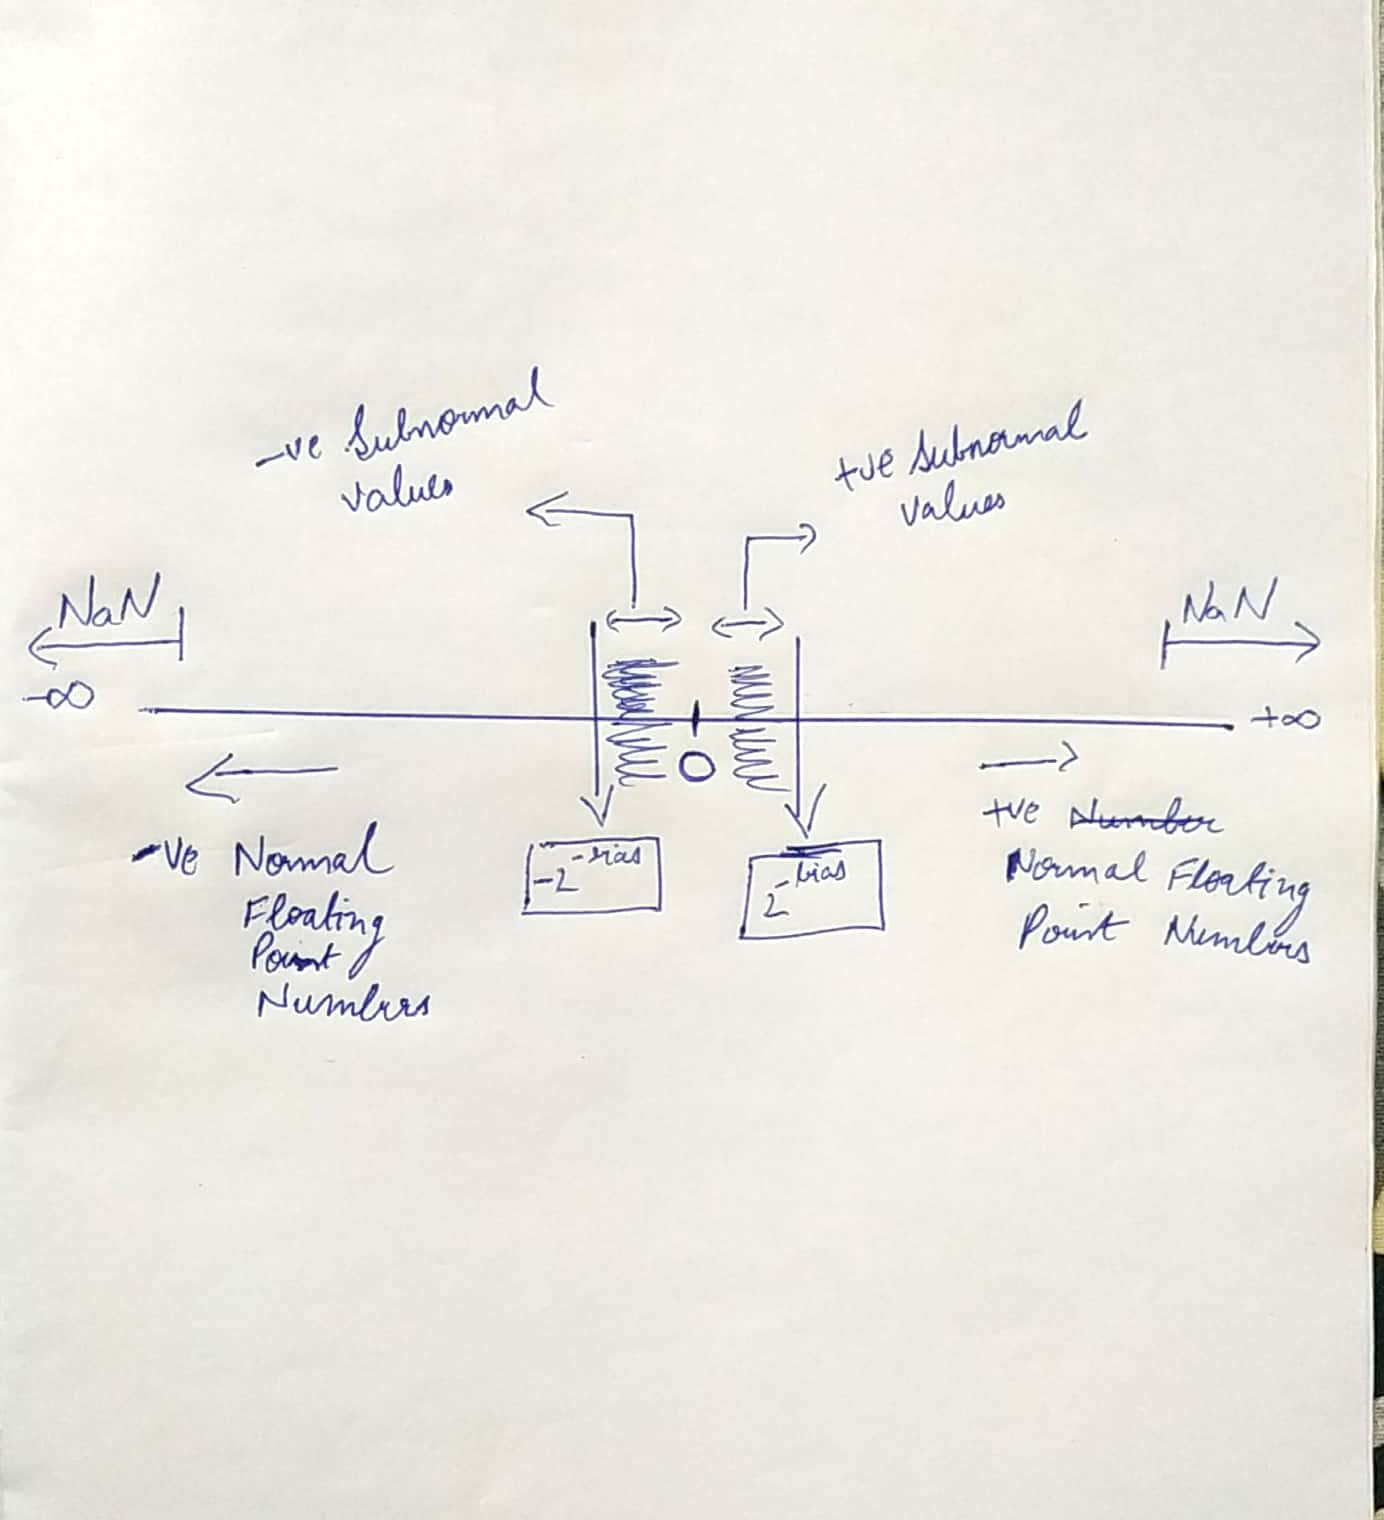 -ve Subnormal
values
+ve Subnormal
values
NaN
NaN
-∞
+∞
0
-ve Normal
Floating
Point
Numbers
-2^-bias
2^-bias
+ve Number
Normal Floating
Point Numbers